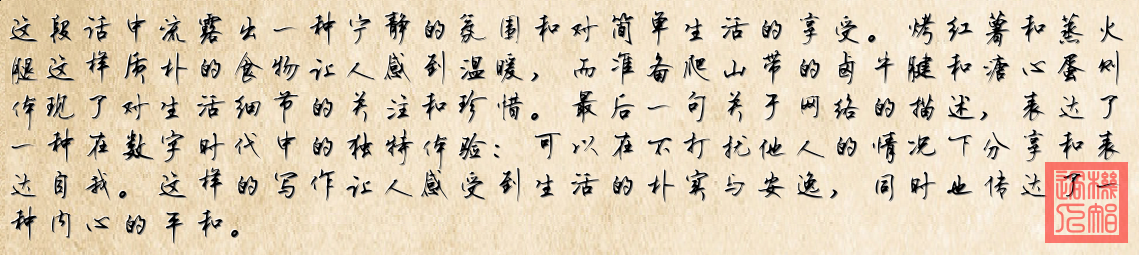 这段话中流露出一种宁静的氛围和对简单生活的享受。烤红薯和蒸火
腿这样质朴的食物让人感到温暖，而准备爬山带的卤牛腱和溏心蛋则
体现了对生活细节的关注和珍惜。最后一句关于网络的描述，表达了
一种在数字时代中的独特体验：可以在不打扰他人的情况下分享和表
达自我。这样的写作让人感受到生活的朴实与安逸，同时也传达了一
种内心的平和。